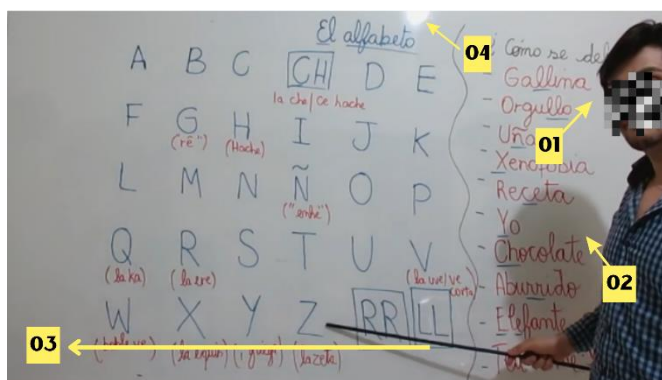 El alfabeto
A B C CH D E
la che/ce hache
F G H I J K
("rê") (Hache)
L M N Ñ O P
("enhê")
Q R S T U V
(la ka) (la ere) (la uve/ve corta)
W X Y Z RR LL
(la equis) (la zeta)
Cómo se
- Gallina
- Orgullo
- Uña
- Xenofobia
- Receta
- Yo
- Chocolate
- Aburrido
- Elefante
01
02
03
04